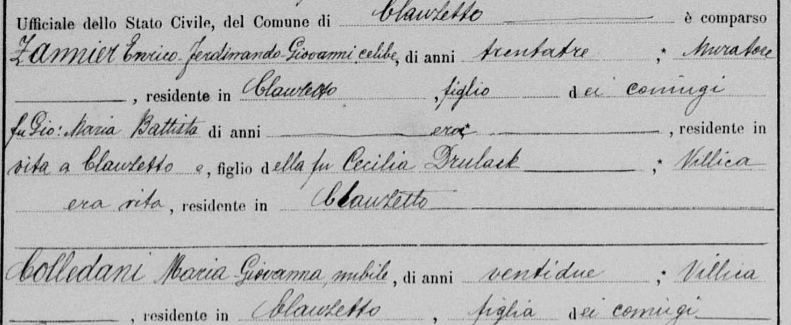 Ufficiale dello Stato Civile, del Comune di Clauzetto è comparso
Zannier Enrico-Ferdinando-Giovanni, celibe, di anni trentatre ; Muratore
, residente in Clauzetto , figlio dei coniugi
fu Gio: Maria Battista di anni era , residente in
vita a Clauzetto e, figlio della fu Cecilia Drulask ; Villica
era vita, residente in Clauzetto
Colledani Maria-Giovanna, nubile, di anni ventidue ; Villica
, residente in Clauzetto , figlia dei coniugi